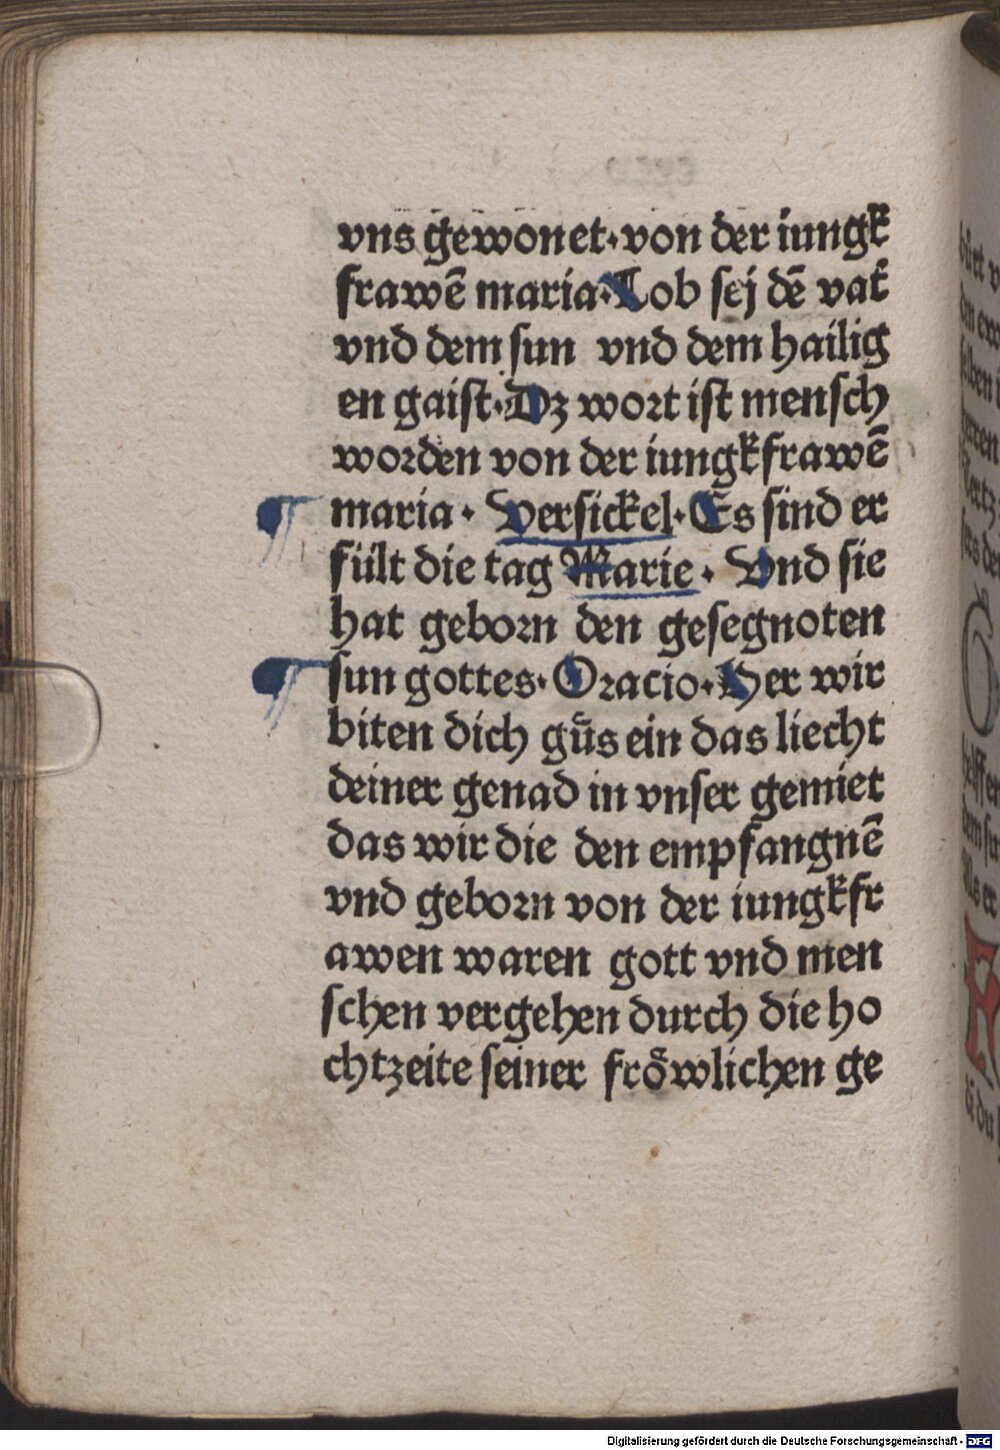 vns gewonet·von der iungk̄
frawē maria·Lob sej dē vat̄
vnd dem sun vnd dem hailig
en gaist·Dz wort ist mensch
worden von der iungk̄frawē
maria· Versickel·Es sind er
fült die tag Marie· Vnd sie
hat geborn den gesegnoten
¶ sun gottes·Oracio·Her wir
biten dich gu̇s ein das liecht
deiner genad in vnser gemiet
das wir die den empfangnē
vnd geborn von der iungk̄fr
awen waren gott vnd men
schen vergehen durch die ho
chtzeite seiner frőwlichen ge
Digitalisierung gefördert durch die Deutsche Forschungsgemeinschaft - DFG